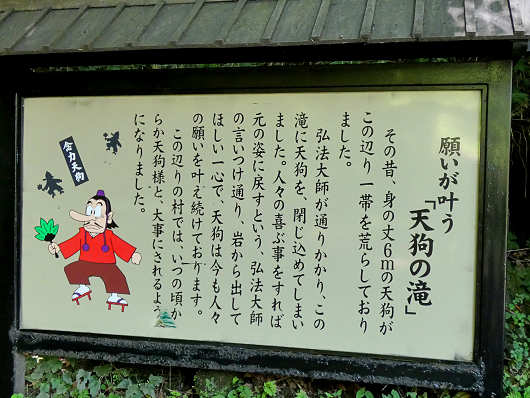 願いが叶う
「天狗の滝」
その昔、身の丈6mの天狗が
この辺り一帯を荒らしており
ました。
弘法大師が通りかかり、この
滝に天狗を、閉じ込めてしまい
ました。人々の喜ぶ事をすれば
元の姿に戻すという、弘法大師
の言いつけ通り、岩から出して
ほしい一心で、天狗は今も人々
の願いを叶え続けております。
この辺りの村では、いつの頃か
らか天狗様と、大事にされるよう
になりました。
念力天狗